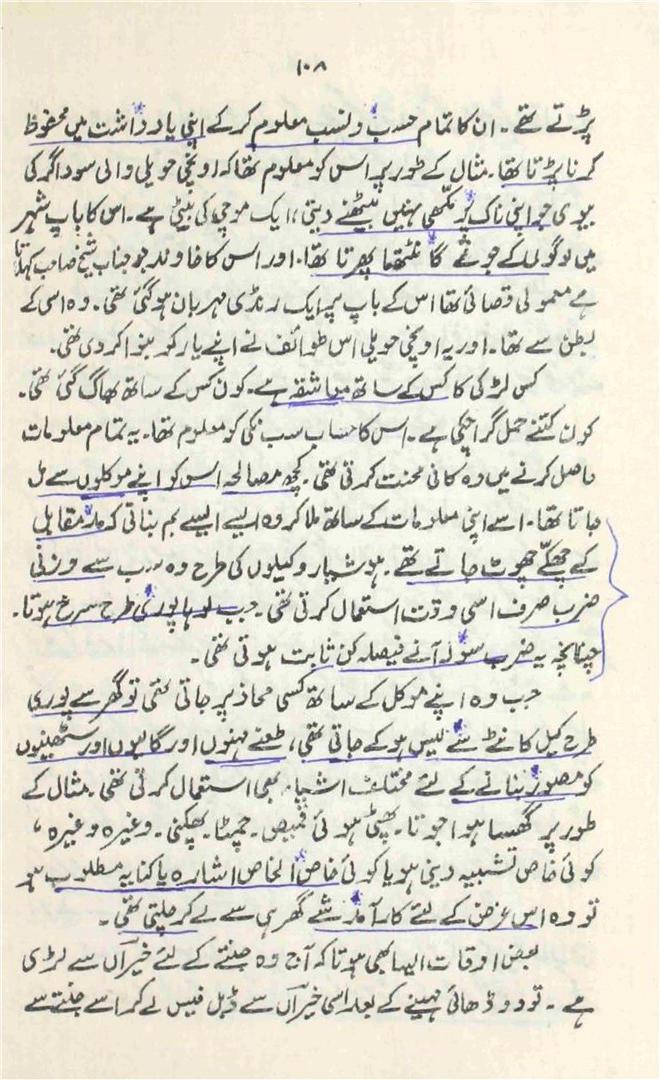 ۱۰۸
پڑتے تھے۔ ان کا تمام حسب و نسب معلوم کر کے اپنی یادداشت میں محفوظ
کرنا پڑتا تھا۔ مثال کے طور پر اس کو معلوم تھا کہ اونچی حویلی والی سوداگر کی
بیوی جو اپنی ناک پر مکھی نہیں بیٹھنے دیتی، ایک موچی کی بیٹی ہے۔ اس کا باپ شہر
میں لوگوں کے جوتے گانٹھتا پھرتا تھا۔ اور اس کا خاوند جو جناب شیخ صاحب کہلاتا
ہے معمولی قصائی تھا اس کے باپ پر ایک رنڈی مہربان ہو گئی تھی۔ وہ اسی کے
بطن سے تھا۔ اور یہ اونچی حویلی اس طوائف نے اپنے یار کو بنوا کر دی تھی۔
کس لڑکی کا کس کے ساتھ معاشقہ ہے۔ کون کس کے ساتھ بھاگ گئی تھی۔
کون کتنے حمل گرا چکی ہے۔ اس کا حساب سب نکی کو معلوم تھا۔ یہ تمام معلومات
حاصل کرنے میں وہ کافی محنت کرتی تھی۔ کچھ مصالحہ اس کو اپنے موکلوں سے مل
جاتا تھا۔ اسے اپنی معلومات کے ساتھ ملا کر وہ ایسے ایسے بم بناتی کہ مدِ مقابل
کے چھکے چھوٹ جاتے تھے۔ ہوشیار وکیلوں کی طرح وہ سب سے وزنی
ضرب صرف اسی وقت استعمال کرتی تھی۔ جب لوہا پوری طرح سرخ ہوتا۔
چنانچہ یہ ضرب سولہ آنے فیصلہ کن ثابت ہوتی تھی۔
جب وہ اپنے موکل کے ساتھ کسی محاذ پر جاتی تھی تو گھر سے پوری
طرح کیل کانٹے سے لیس ہو کے جاتی تھی، طعنے مہنوں اور گالیوں اور سٹھنیوں
کو مصور بنانے کے لئے مختلف اشیاء بھی استعمال کرتی تھی۔ مثال کے
طور پر گھسا ہوا جوتا۔ پھٹی ہوئی قمیص۔ چمٹا۔ پھکنی۔ وغیرہ وغیرہ،
کوئی خاص تشبیہ دینی ہو یا کوئی خاص الخاص اشارہ یا کنایہ مطلوب ہو
تو وہ اس غرض کے لئے کارآمد شے گھر ہی سے لے کر چلتی تھی۔
بعض اوقات ایسا بھی ہوتا کہ آج وہ جنتے کے لئے خیراں سے لڑی
ہے۔ تو دو ڈھائی مہینے کے بعد اسی خیراں سے ڈبل فیس لے کر اسے جنتے سے